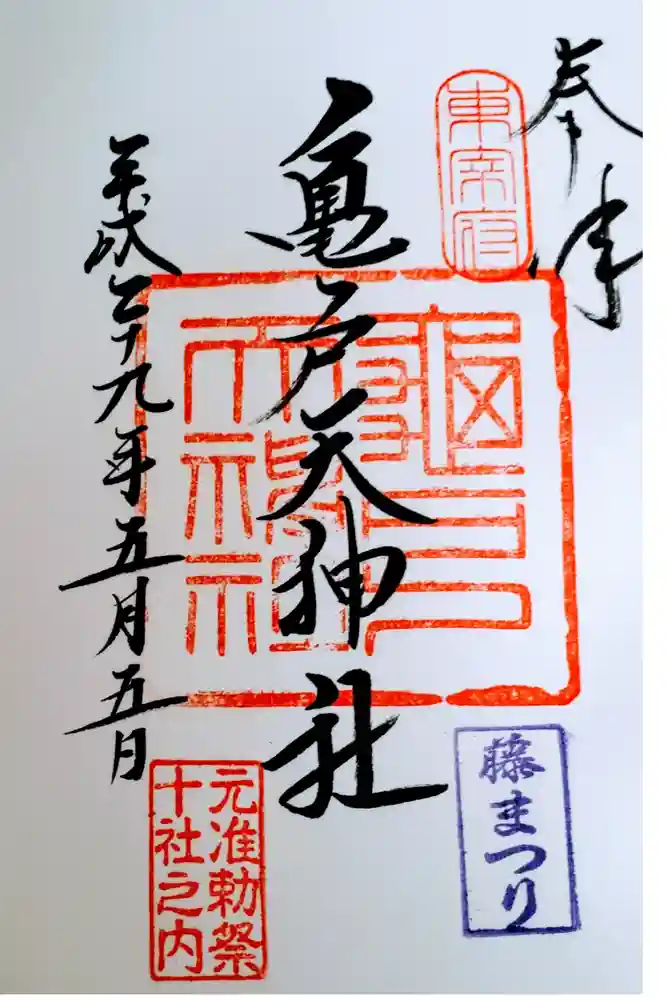 奉拝
東宰府
亀戸天神社
龜戸
天神社
平成二十九年五月五日
藤まつり
元准勅祭
十社之内